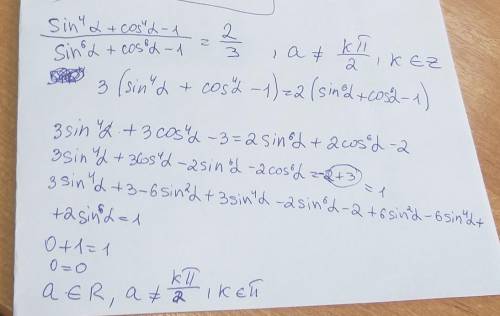 sin⁴α + cos⁴α - 1 / sin⁶α + cos⁶α - 1 = 2/3 , a ≠ kπ/2 , k ∈ z
3 (sin⁴α + cos⁴α - 1) = 2 (sin⁶α + cos⁶α - 1)
3sin⁴α + 3cos⁴α - 3 = 2sin⁶α + 2cos⁶α - 2
3sin⁴α + 3cos⁴α - 2sin⁶α - 2cos⁶α = -2+3 = 1
3sin⁴α + 3 - 6sin²α + 3sin⁴α - 2sin⁶α - 2 + 6sin²α - 6sin⁴α +
+ 2sin⁶α = 1
0 + 1 = 1
0 = 0
a ∈ R, a ≠ kπ/2 , k ∈ π